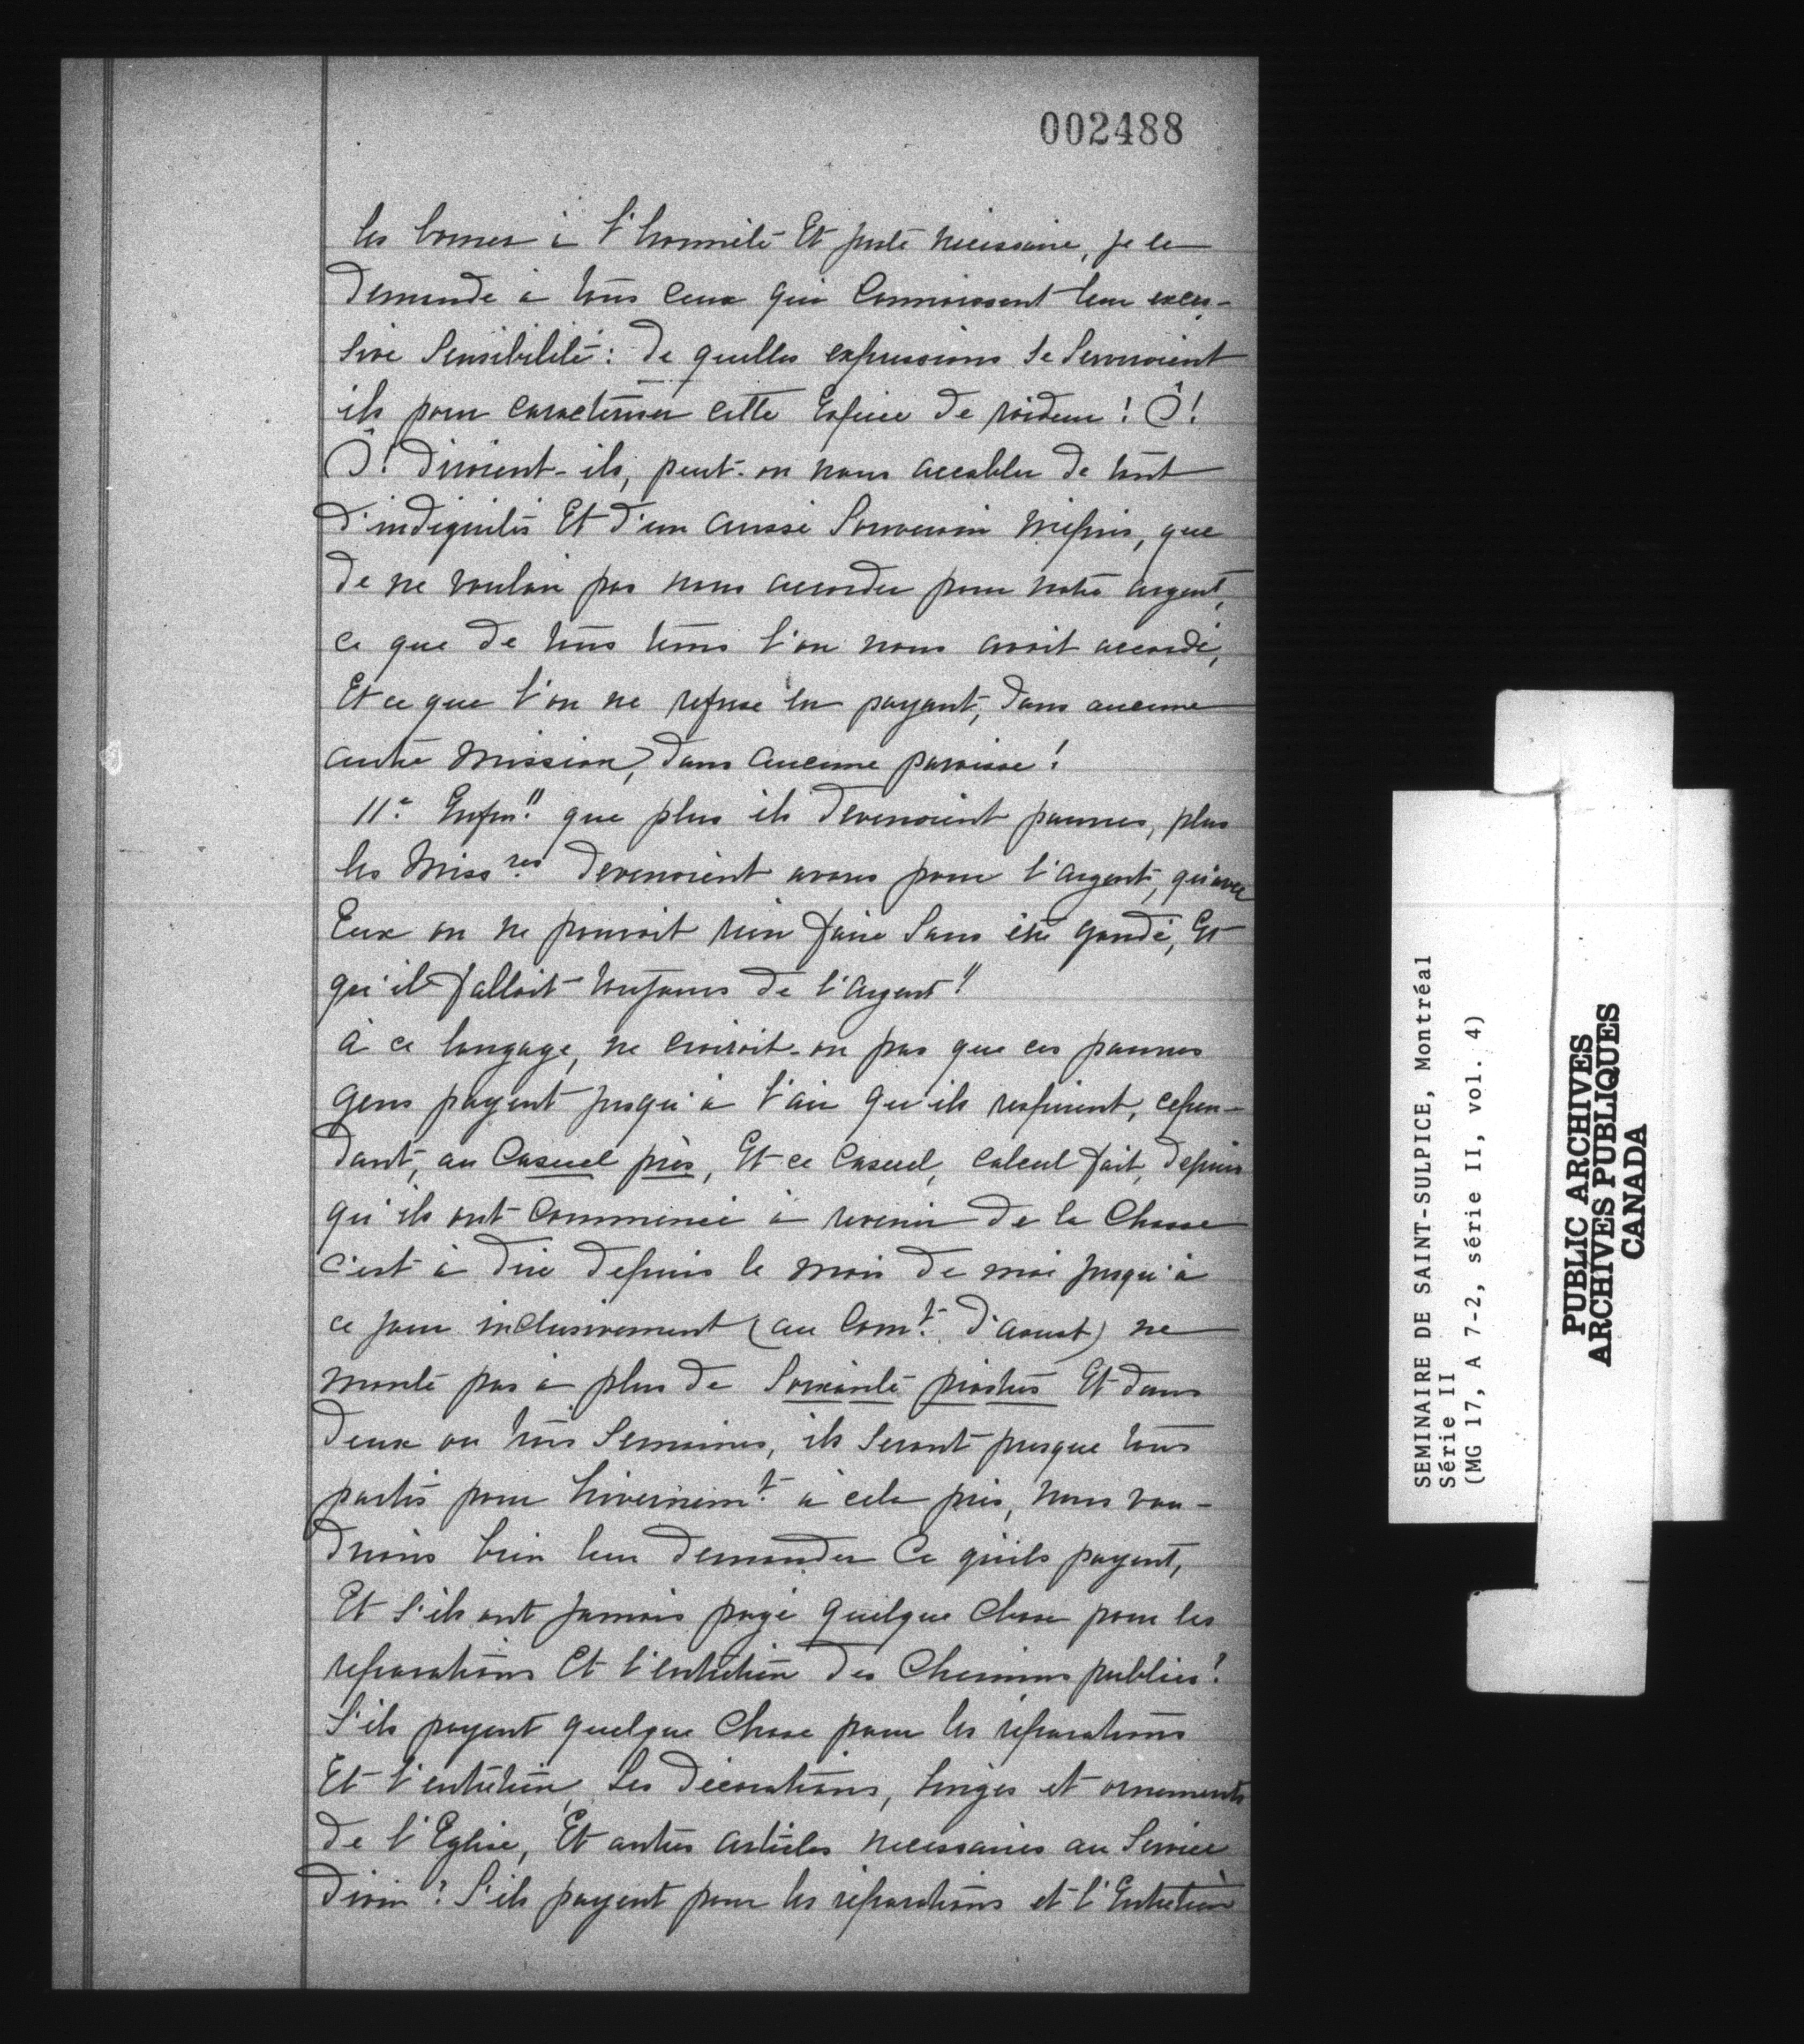 002488
les borner à l'honnête Et juste nécessaire, je le
demande à tous ceux qui connoissent leur exces-
sive Sensibilité: de quelles expressions se serviroient
ils pour caractériser cette Espèce de roideur! Ô!
Ô! diroient-ils, peut-on nous accabler de tant
d'indignités Et d'un aussi Souverain mépris, que
de ne vouloir pas nous accorder pour notre argent,
ce que de tous tems l'on nous avoit accordé,
Et ce que l'on ne refuse en payant, dans aucune
autre Mission, dans aucune paroisse!
11.° Enfin" que plus ils devenoient pauvres, plus
les Miss.res devenoient avares pour l'argent, qu'avec
Eux on ne pouvoit rien faire sans être grondé, Et
qu'il falloit toujours de l'argent"
à ce langage, ne croiroit-on pas que ces pauvres
gens payent jusqu'à l'air qu'ils respirent, cepen-
dant, au Casuel près, Et ce Casuel, calcul fait, depuis
qu'ils ont commencé à revenir de la Chasse
c'est à dire depuis le mois de mai jusqu'à
ce jour inclusivement (au Com.t d'aoust) ne
monte pas à plus de Soixante piastres Et dans
deux ou trois Semaines, ils seront presque tous
partis pour hivernem.t à cela près, nous vou-
drions bien leur demander Ce qu'ils payent,
Et s'ils ont jamais payé quelque chose pour les
réparations Et l'entretien des Chemins publics?
S'ils payent quelque chose pour les réparations
Et l'entretien, Les décorations, linges et ornements
de l'Eglise, Et autres articles nécessaires au Service
divin? S'ils payent pour les réparations et l'Entretien
SEMINAIRE DE SAINT-SULPICE, Montréal
Série II
(MG 17, A 7-2, série II, vol. 4)
PUBLIC ARCHIVES
ARCHIVES PUBLIQUES
CANADA